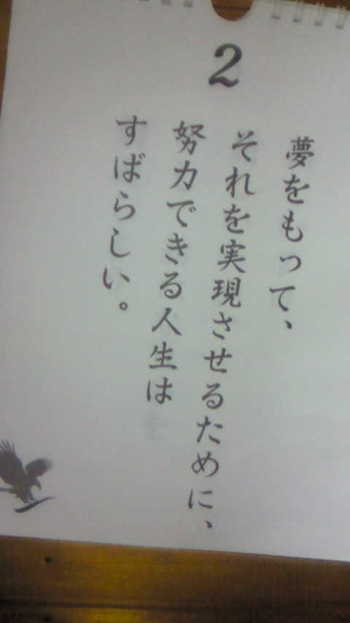 2
夢をもって、
それを実現させるために、
努力できる人生は
すばらしい。